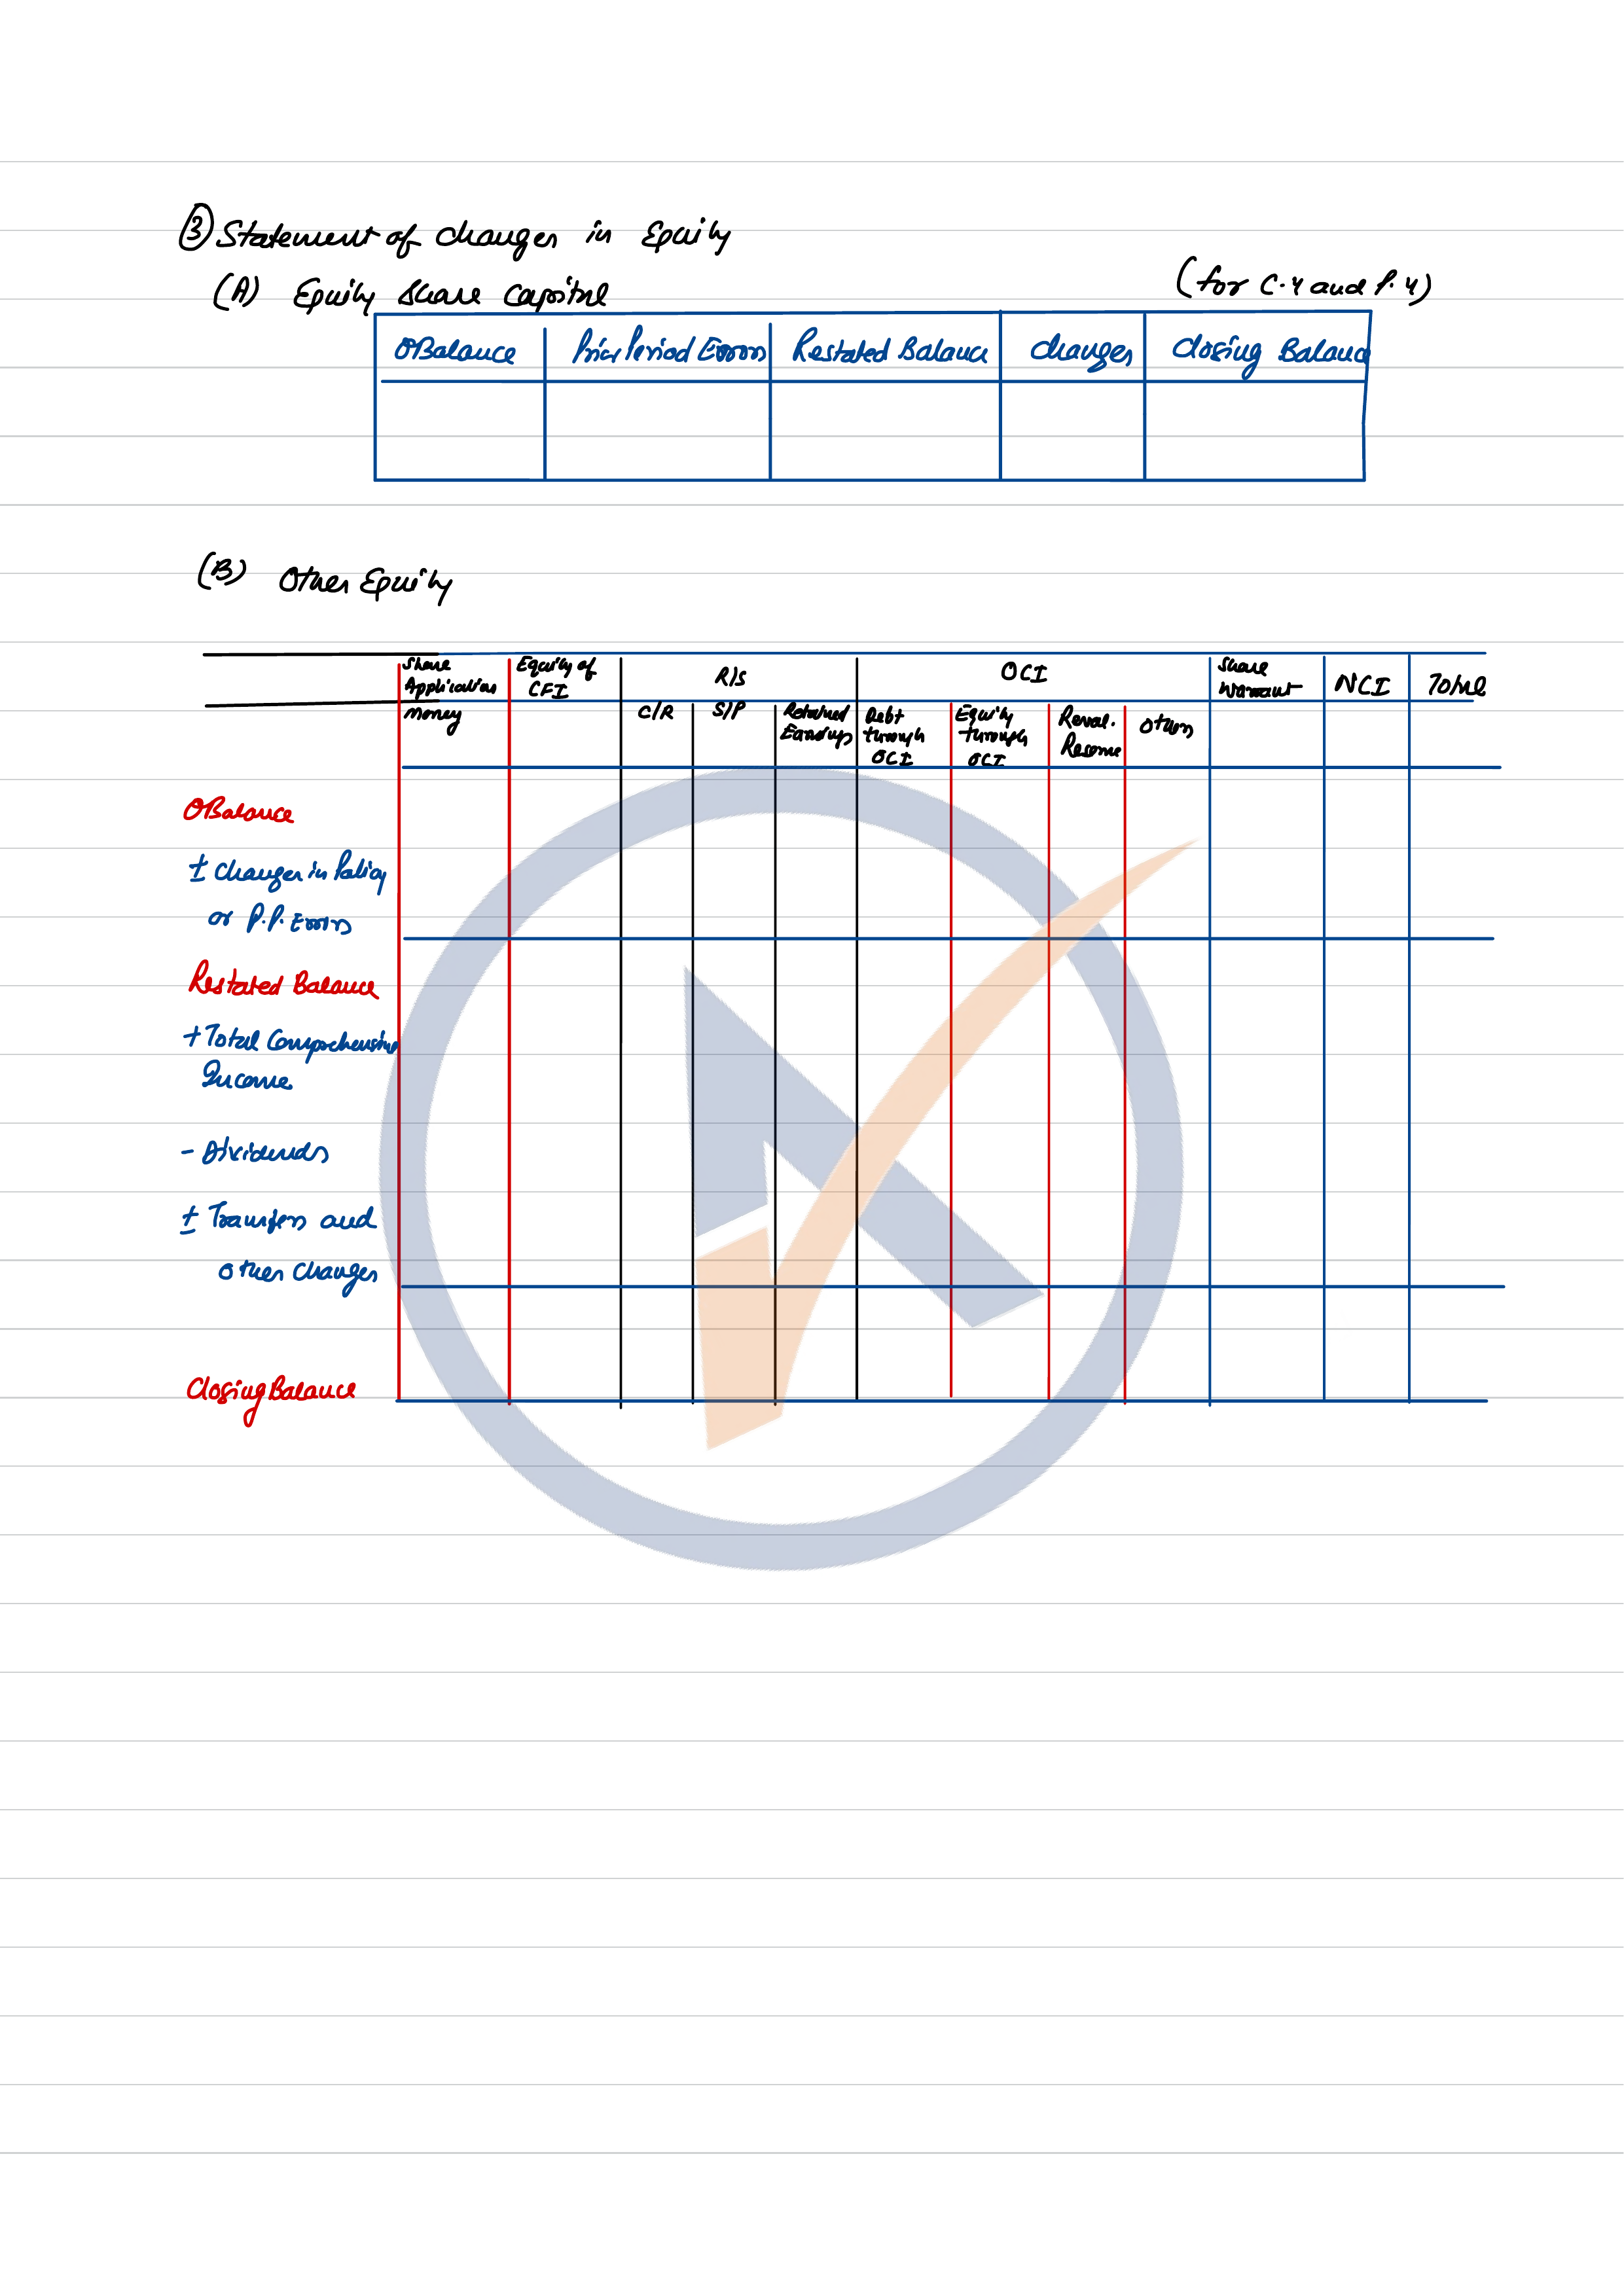 ③ Statement of changes in Equity
(A) Equity Share Capital
(for C.Y and P.Y)
OBalance Prior Period Errors Restated Balance changes closing Balance
(B) Other Equity
Share Application money Equity of CFI R/S OCI Share Warrant NCI Total
C/R S/P Retained Earnings Debt through OCI Equity through OCI Reval. Reserve others
OBalance
± changes in Policy
or P.P. Errors
Restated Balance
+ Total Comprehensive
Income
- Dividends
± Transfers and
other changes
Closing Balance